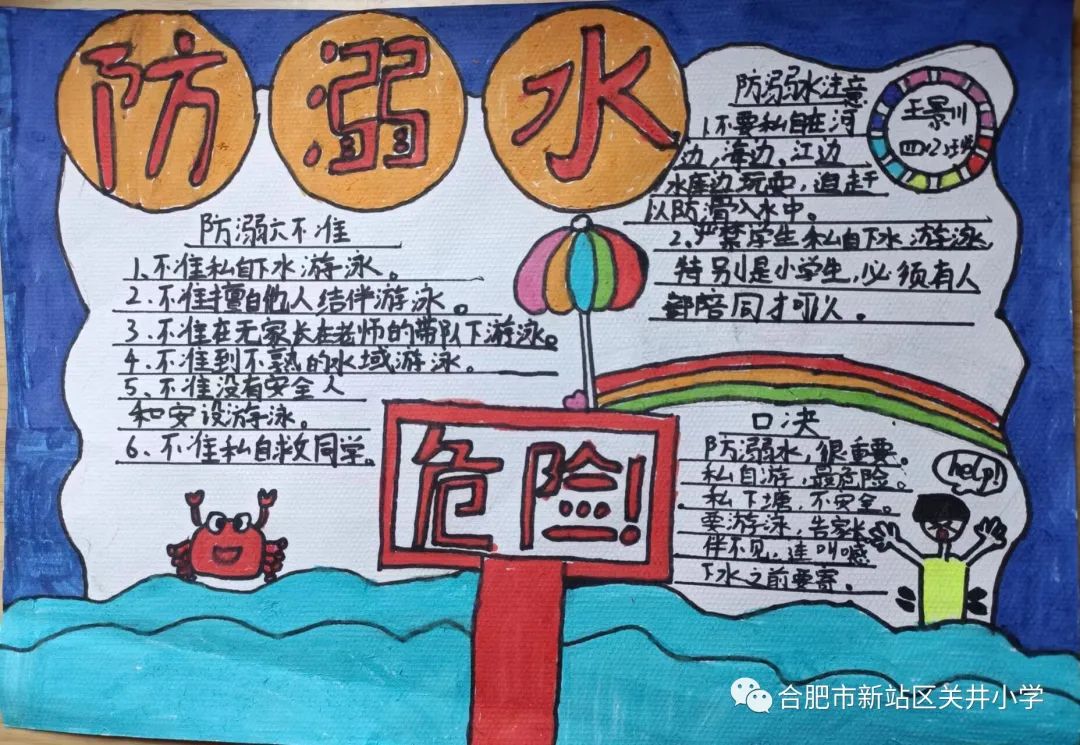 防溺水
防溺六不准
1、不准私自下水游泳。
2、不准擅自他人结伴游泳。
3、不准在无家长在老师的带队下游泳。
4、不准到不熟的水域游泳。
5、不准没有安全人
和安设游泳。
6、不准私自救同学。
防溺水注意
1.不要私自在河
边，海边、江边
水库边玩耍，追赶
以防滑入水中。
2、严禁学生私自下水游泳
特别是小学生，必须有人
都陪同才可以。
王景川
四(2)班
危险!
口决
防溺水，很重要。
私自游，最危险。
私下塘，不安全。
要游泳，告家长
伴不见，连叫喊
下水之前要寄。
help!
合肥市新站区关井小学